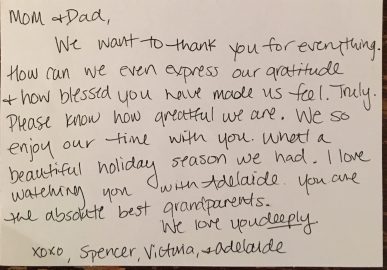 Mom + Dad,
We want to thank you for everything.
How can we even express our gratitude
+ how blessed you have made us feel. Truly.
Please know how greatful we are. We so
enjoy our time with you. What a
beautiful holiday season we had. I love
watching you with Adelaide. You are
the absolute best grandparents.
We love you deeply.
xoxo, Spencer, Victoria, + Adelaide